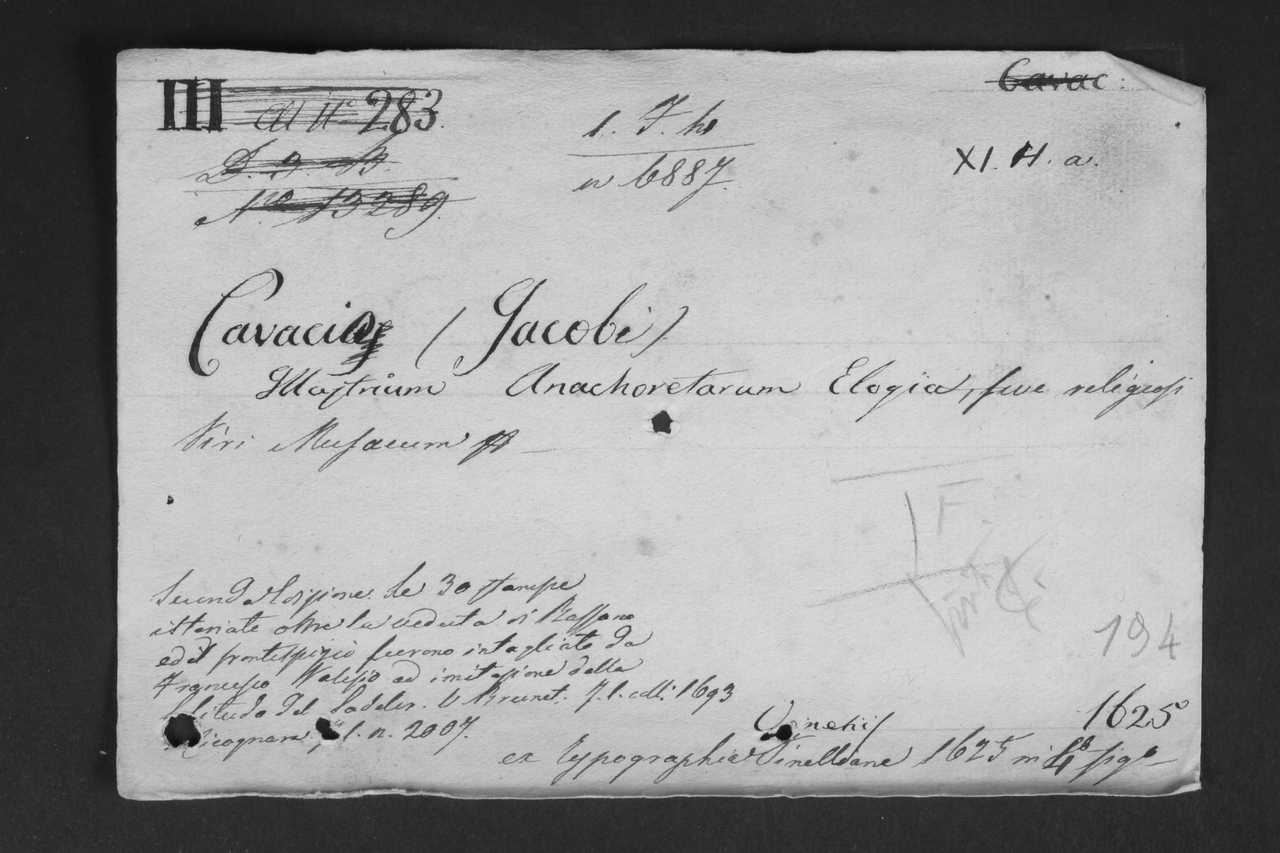 III 283. Cavac:
1. F. h
n 6887. XI. H. a.
D. 9. B.
N.o 13289.
Cavacii (Jacobi)
Illustrium Anachoretarum Elogia, sive religiosi
Viri Musaeum
F
Seconda Edizione. Le 30 stampe
istoriate oltre la veduta di Bassano
ed il frontispizio furono intagliate da
Francesco Valesio ad imitazione della
Solitudo del Sadeler. V. Brunet. T. 1. coll. 1693
Cicognara l. n. 2007.
194
1625
Venetiis
ex typographia Pinelliana 1625 in 4o fig.o